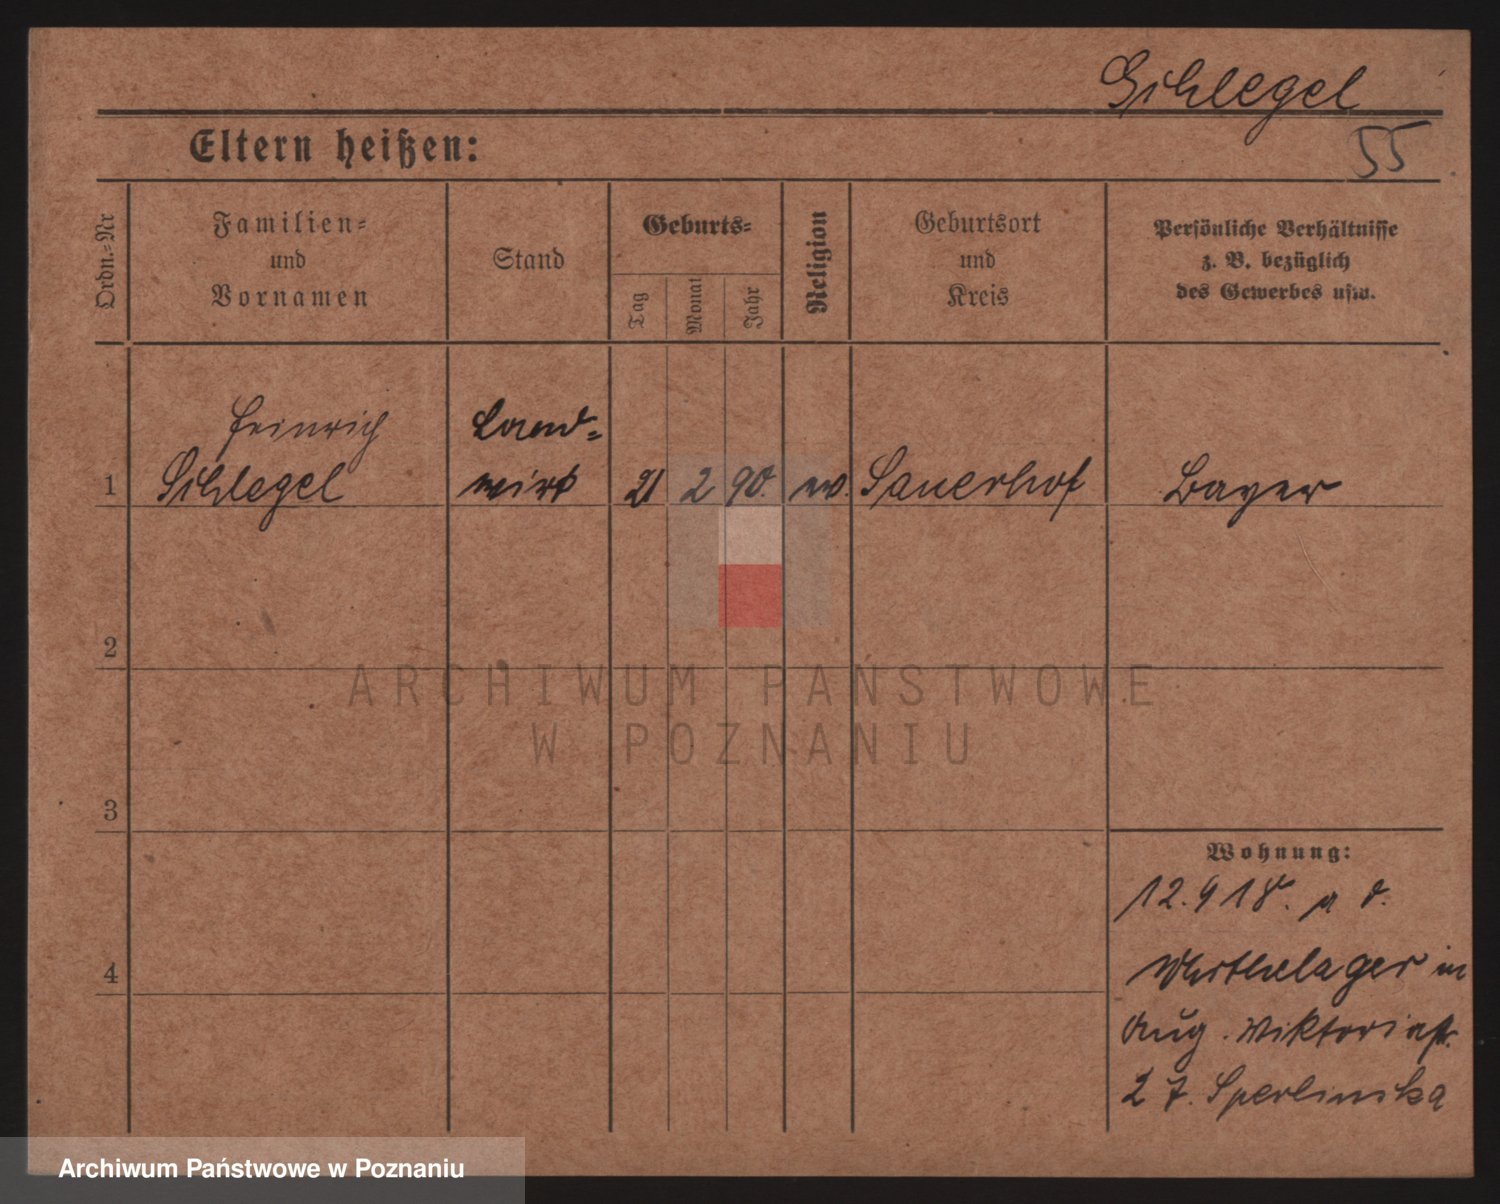 Schlegel
55
Eltern heißen:
Ordn.-Nr
Familien-
und
Vornamen
Stand
Geburts-
Tag
Monat
Jahr
Religion
Geburtsort
und
Kreis
Persönliche Verhältnisse
z. B. bezüglich
des Gewerbes usw.
Heinrich
Land-
1 Schlegel wirt 21 2 90. Sauerhof Bayer
2
ARCHIWUM PAŃSTWOWE
W POZNANIU
3
Wohnung:
12.9 18. a d.
4
Warthelager in
Aug. Viktoriastr.
27. Sperlinska
Archiwum Państwowe w Poznaniu